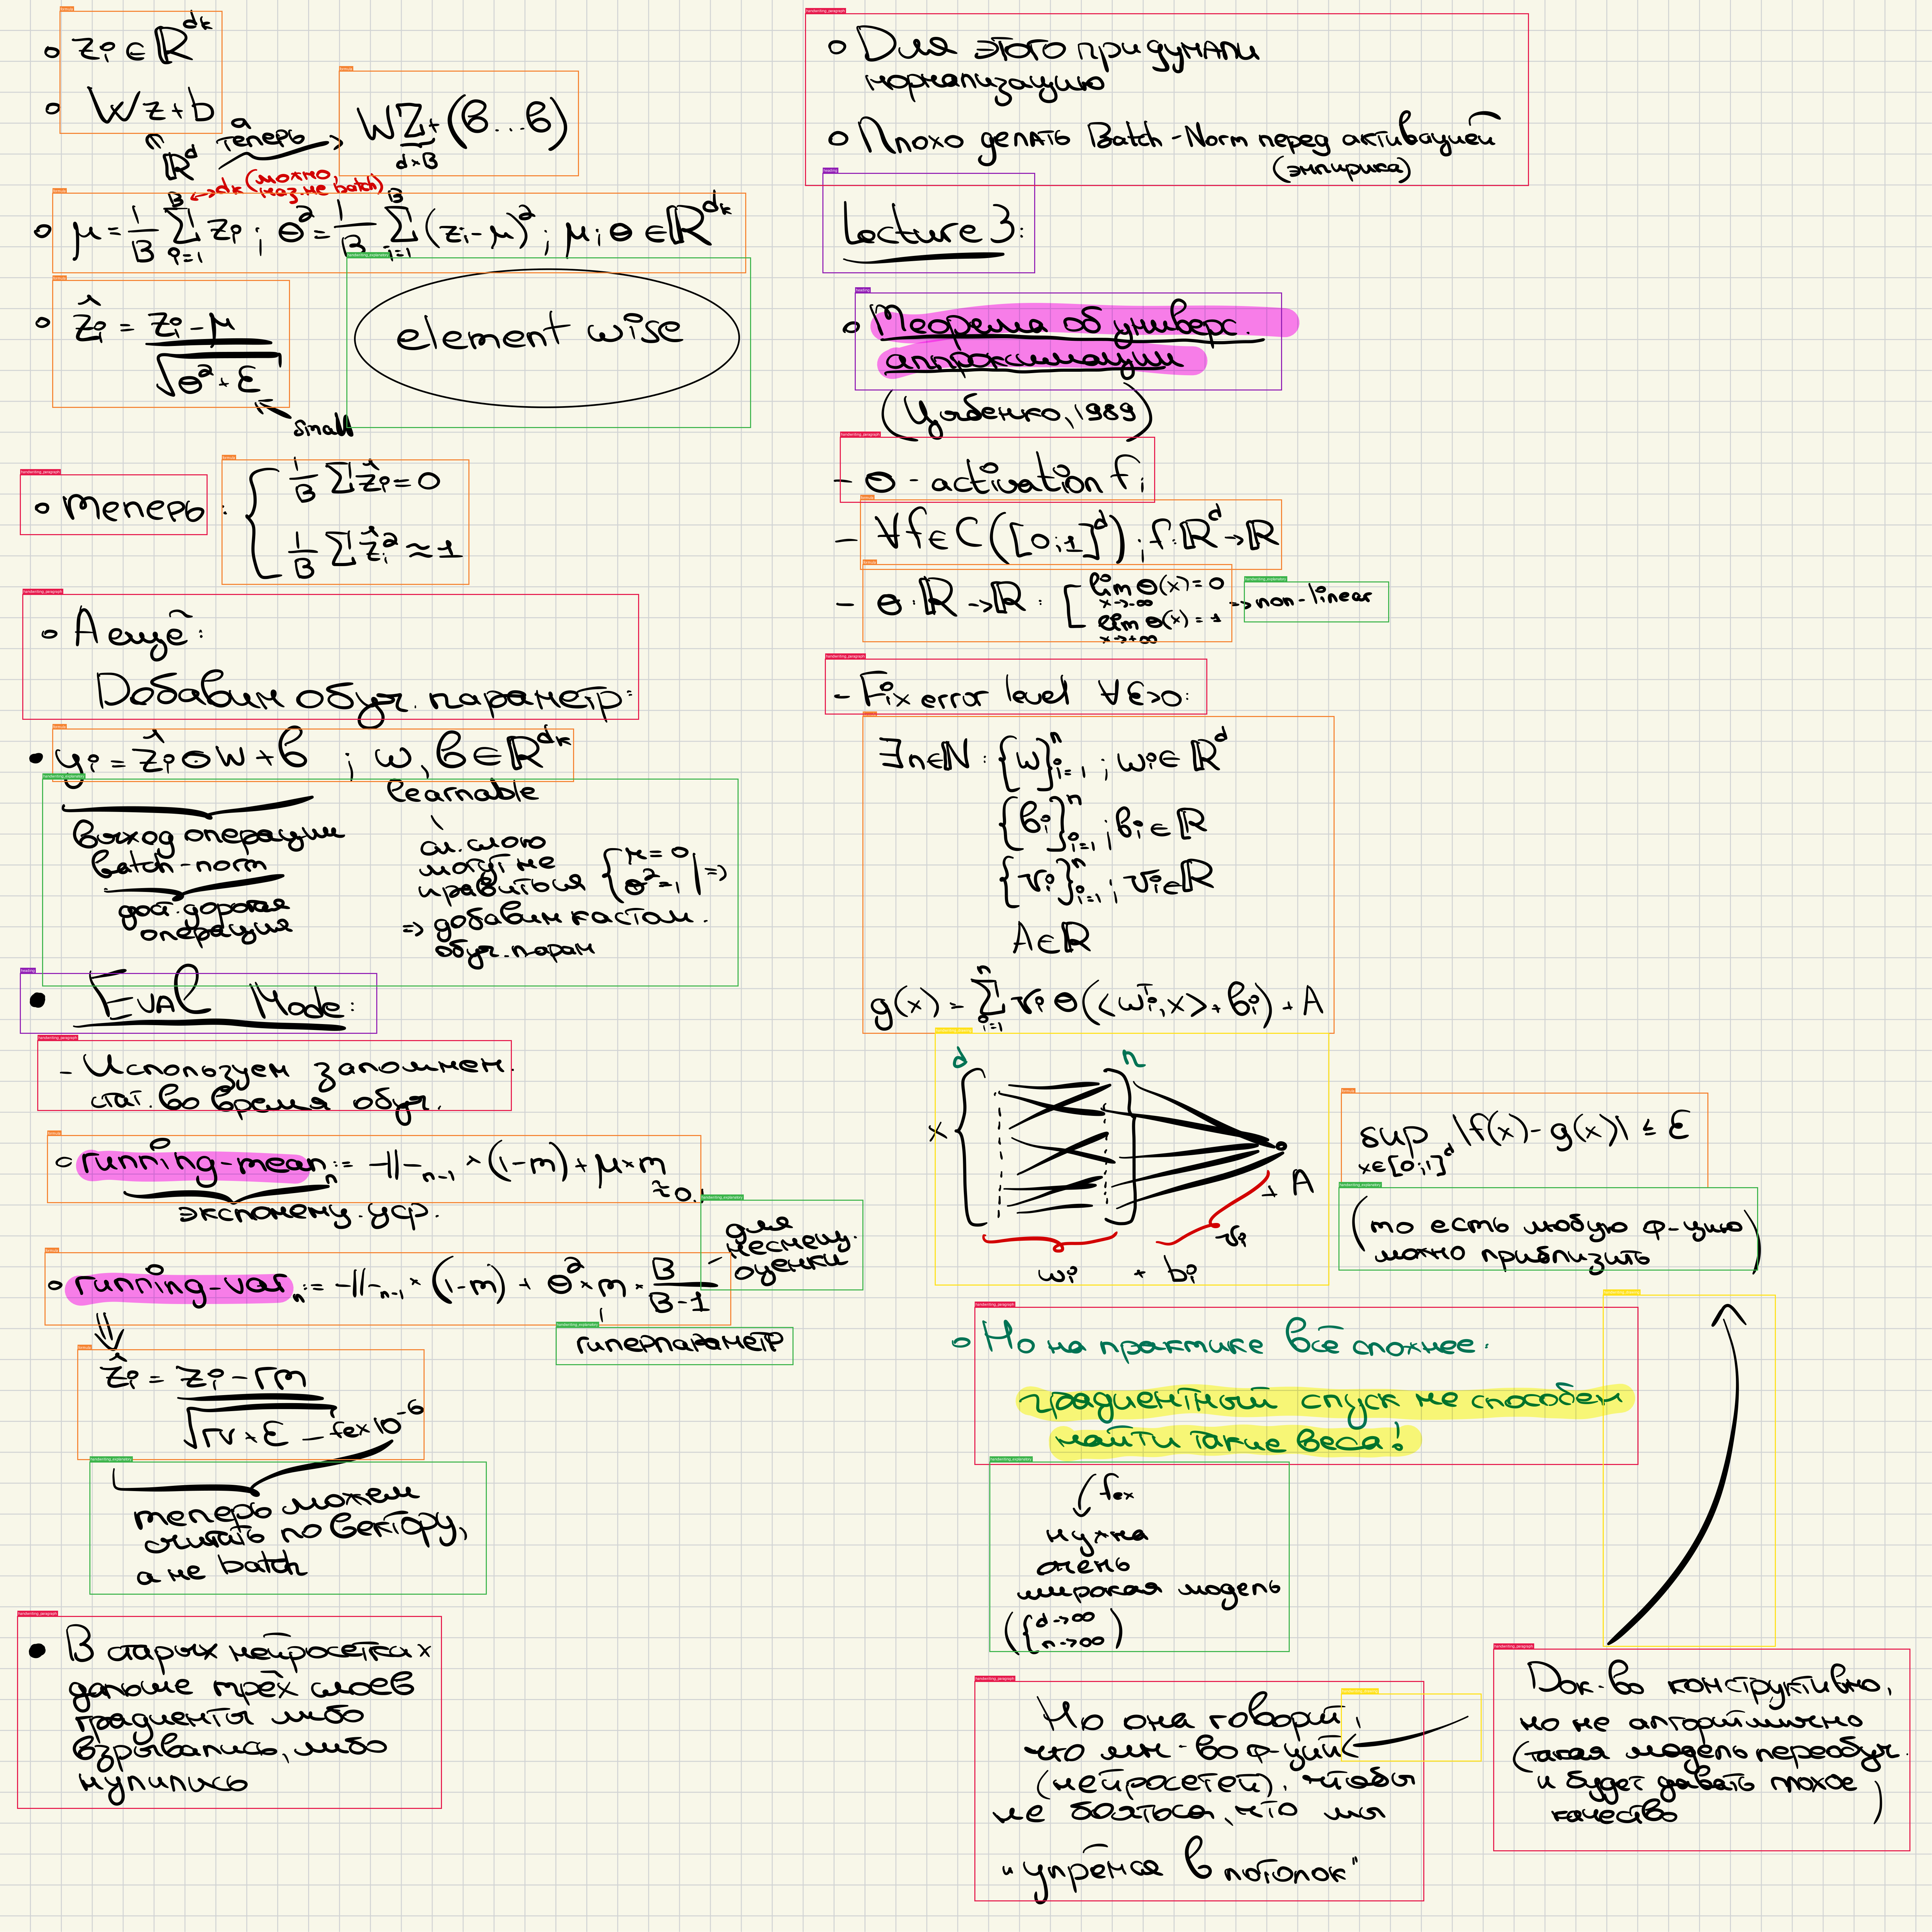 ∘ zᵢ ∈ ℝ^{dₖ}
∘ Wz + b
ℝ^d
а теперь →
WZ + (b...b)
d×B
↔ dₖ (можно, наз. не batch)
∘ μ = 1/B ∑_{i=1}^{B} zᵢ ; σ² = 1/B ∑_{i=1}^{B} (zᵢ - μ)² ; μ; σ ∈ ℝ^{dₖ}
∘ ẑᵢ = (zᵢ - μ) / √(σ² + ε)
small
element wise
∘ теперь : { 1/B ∑ ẑᵢ = 0
1/B ∑ ẑᵢ² ≈ 1
∘ А ещё:
Добавим обуч. параметр:
• yᵢ = ẑᵢ ⊙ w + b ; w, b ∈ ℝ^{dₖ}
learnable
выход операции
batch-norm
дост. дорогая
операция
сл. слою
могут не
нравиться { μ = 0, σ² = 1 | =>
=> добавим кастом.
обуч. парам
• Eval Mode:
- Используем запомнен.
стат. во время обуч.
∘ running-mean_n := -||-_{n-1} × (1-m) + μ × m
≈ 0.1
экспоненц. уср.
для
несмещ.
оценки
∘ running-var_n := -||-_{n-1} × (1-m) + σ² × m × B/(B-1)
гиперпараметр
⇓
ẑᵢ = (zᵢ - rm) / √(rv + ε) - fex 10⁻⁶
теперь можем
считать по вектору,
а не batch
• В старых нейросетках
дальше трёх слоев
градиенты либо
взрывались, либо
нулились
∘ Для этого придумали
нормализацию
∘ Плохо делать Batch-Norm перед активацией
(эмпирика)
Lecture 3:
∘ Теорема об универс.
аппроксимации
(Цибенко, 1989)
- σ - activation f;
- ∀f ∈ C([0;1]^d) ; f: ℝ^d → ℝ
- σ: ℝ → ℝ : [ lim_{x→-∞} σ(x) = 0
lim_{x→+∞} σ(x) = 1
=> non-linear
- Fix error level ∀ε>0:
∃n∈ℕ : {w}_{i=1}^n ; wᵢ ∈ ℝ^d
{bᵢ}_{i=1}^n ; bᵢ ∈ ℝ
{vᵢ}_{i=1}^n ; vᵢ ∈ ℝ
A ∈ ℝ
g(x) = ∑_{i=1}^n vᵢ σ(<wᵢᵀ, x> + bᵢ) + A
d
n
x
+ A
vᵢ
wᵢ + bᵢ
sup_{x∈[0;1]^d} |f(x) - g(x)| ≤ ε
(то есть любую ф-цию
можно приблизить)
∘ Но на практике всё сложнее:
градиентный спуск не способен
найти такие веса!
fex
нужна
очень
широкая модель
({ d→∞
n→∞ )
Но она говорит,
что мн-во ф-ций
(нейросетей), чтобы
не бояться, что мы
"упрёмся в потолок"
Док-во конструктивно,
но не алгоритмично
(такая модель переобуч.
и будет давать плохое
качество)